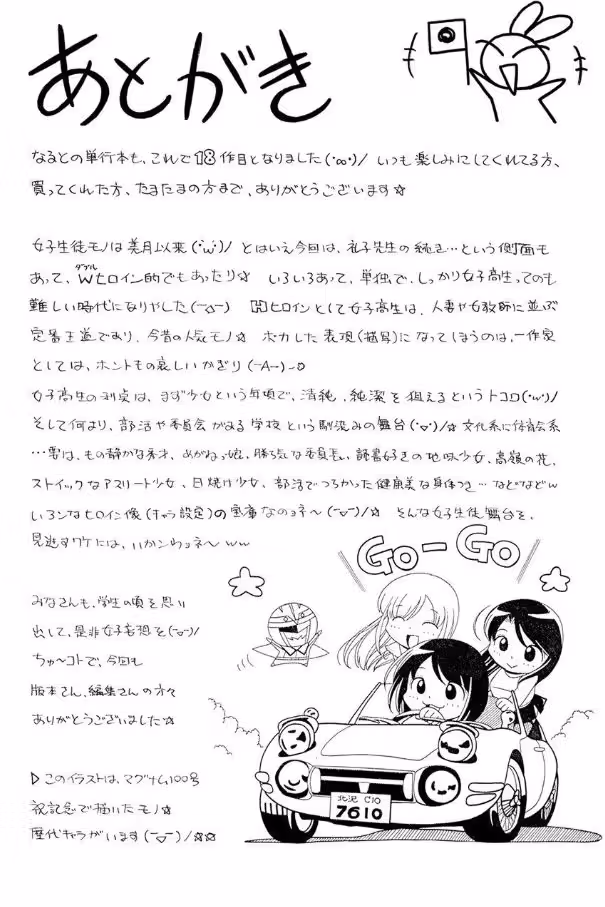 あとがき
なるとの単行本も、これで18作目となりました(･∞･)/ いつも楽しみにしてくれてる方、
買ってくれた方、たまたまの方まで、ありがとうございます☆
女子生徒モノは美月以来(･ω･)/ とはいえ今回は、礼子先生の続き…という側面も
あって、Wヒロイン的でもあったり☆ いろいろあって、単独で、しっかり女子高生ってのも
ダブル
難しい時代になりやした(ー△ー) Hヒロインとして女子高生は、人妻や女教師に並ぶ
定番王道であり、今昔の人気モノ☆ ボカした表現(描写)になってしまうのは、一作家
としては、ホントもの哀しいかぎり(ーAー)-o
女子高生の利点は、まず少女という年頃で、清純、純潔を狙えるというトコロ(･ω･)/
そして何より、部活や委員会がある学校という馴染みの舞台(･▽･)/☆ 文化系に体育会系
…要は、もの静かな秀才、めがねっ娘、勝ち気な委員長、読書好きの地味少女、高嶺の花、
ストイックなアスリート少女、日焼け少女、部活でつちかった健康美な身体つき…などなどw
いろンなヒロイン像(キャラ設定)の宝庫なのョネ〜(ー▽ー)/☆ そんな女子生徒舞台を、
見逃すワケには、いかンわョネ〜ww
GO-GO
みなさんも、学生の頃を思い
出して、是非女子妄想を(ー▽ー)/
ちゅ〜コトで、今回も
版本さん、編集さんの方々
ありがとうございました☆
▷このイラストは、マグナム100号
祝記念で描いたモノ☆
歴代キャラがいます(ー▽ー)/☆☆
北沢 C10
7610